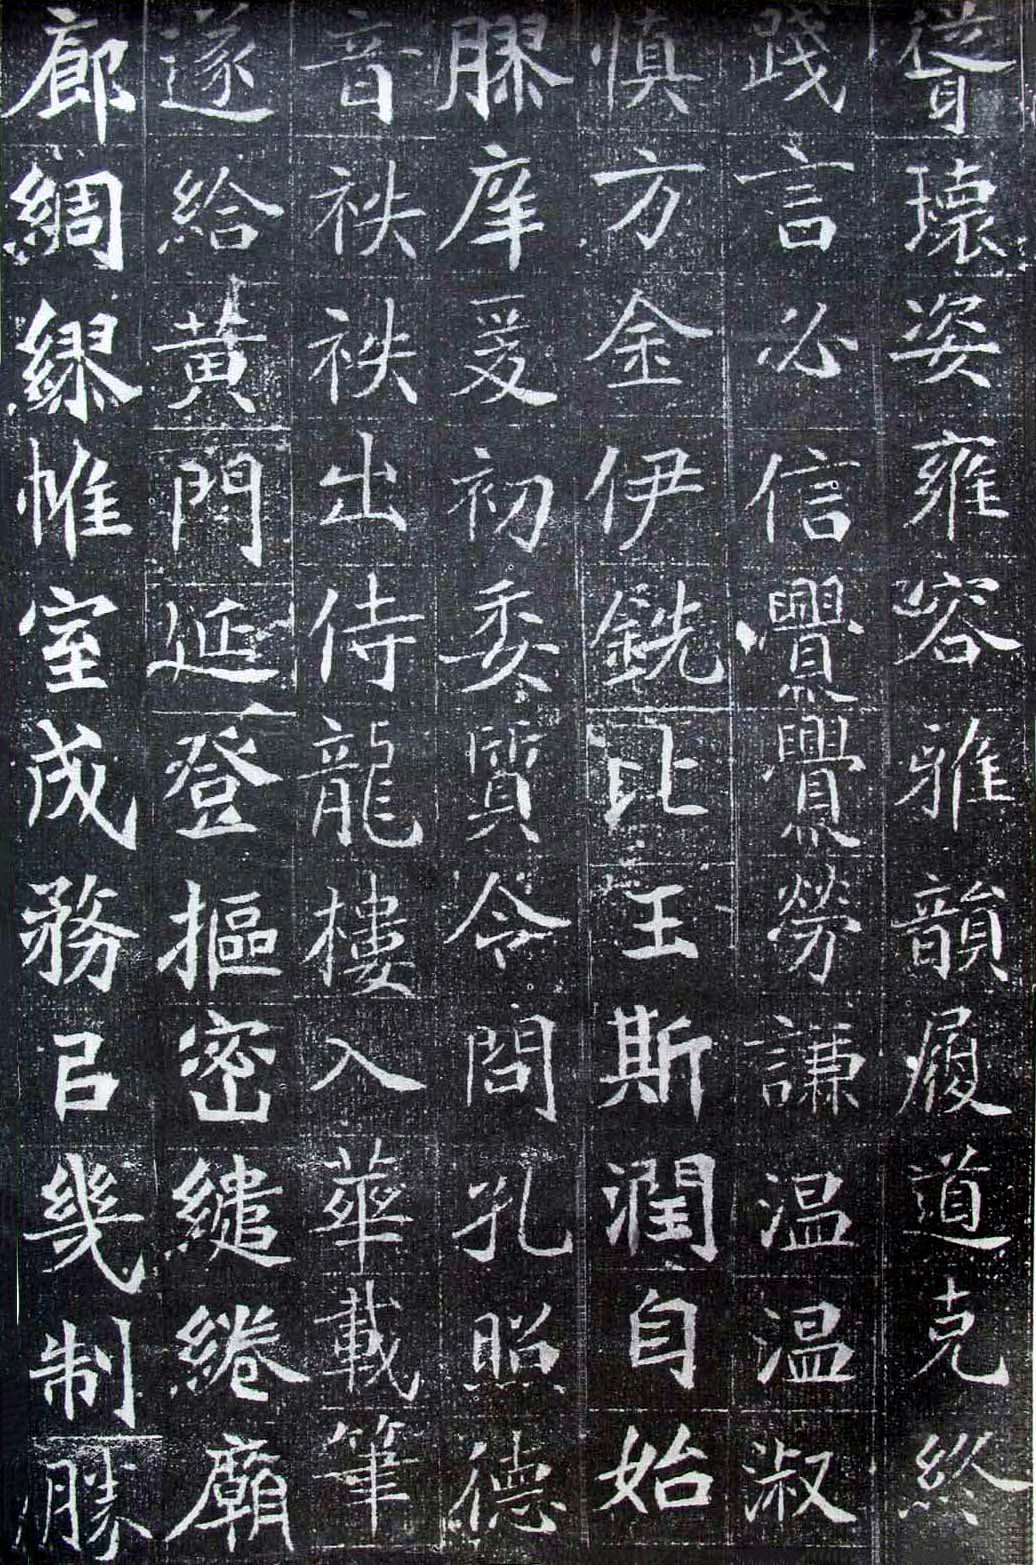 聳瓌姿雍容雅韻履道克
踐言必信亹亹勞謙温温淑
慎方金伊銑比玉斯潤自始
膠庠爰初委質令問孔照德
音袟袟出侍龍樓入華載筆
遂給黃門延登樞密繾綣廟
廊綢繆帷室成務㠯幾制勝